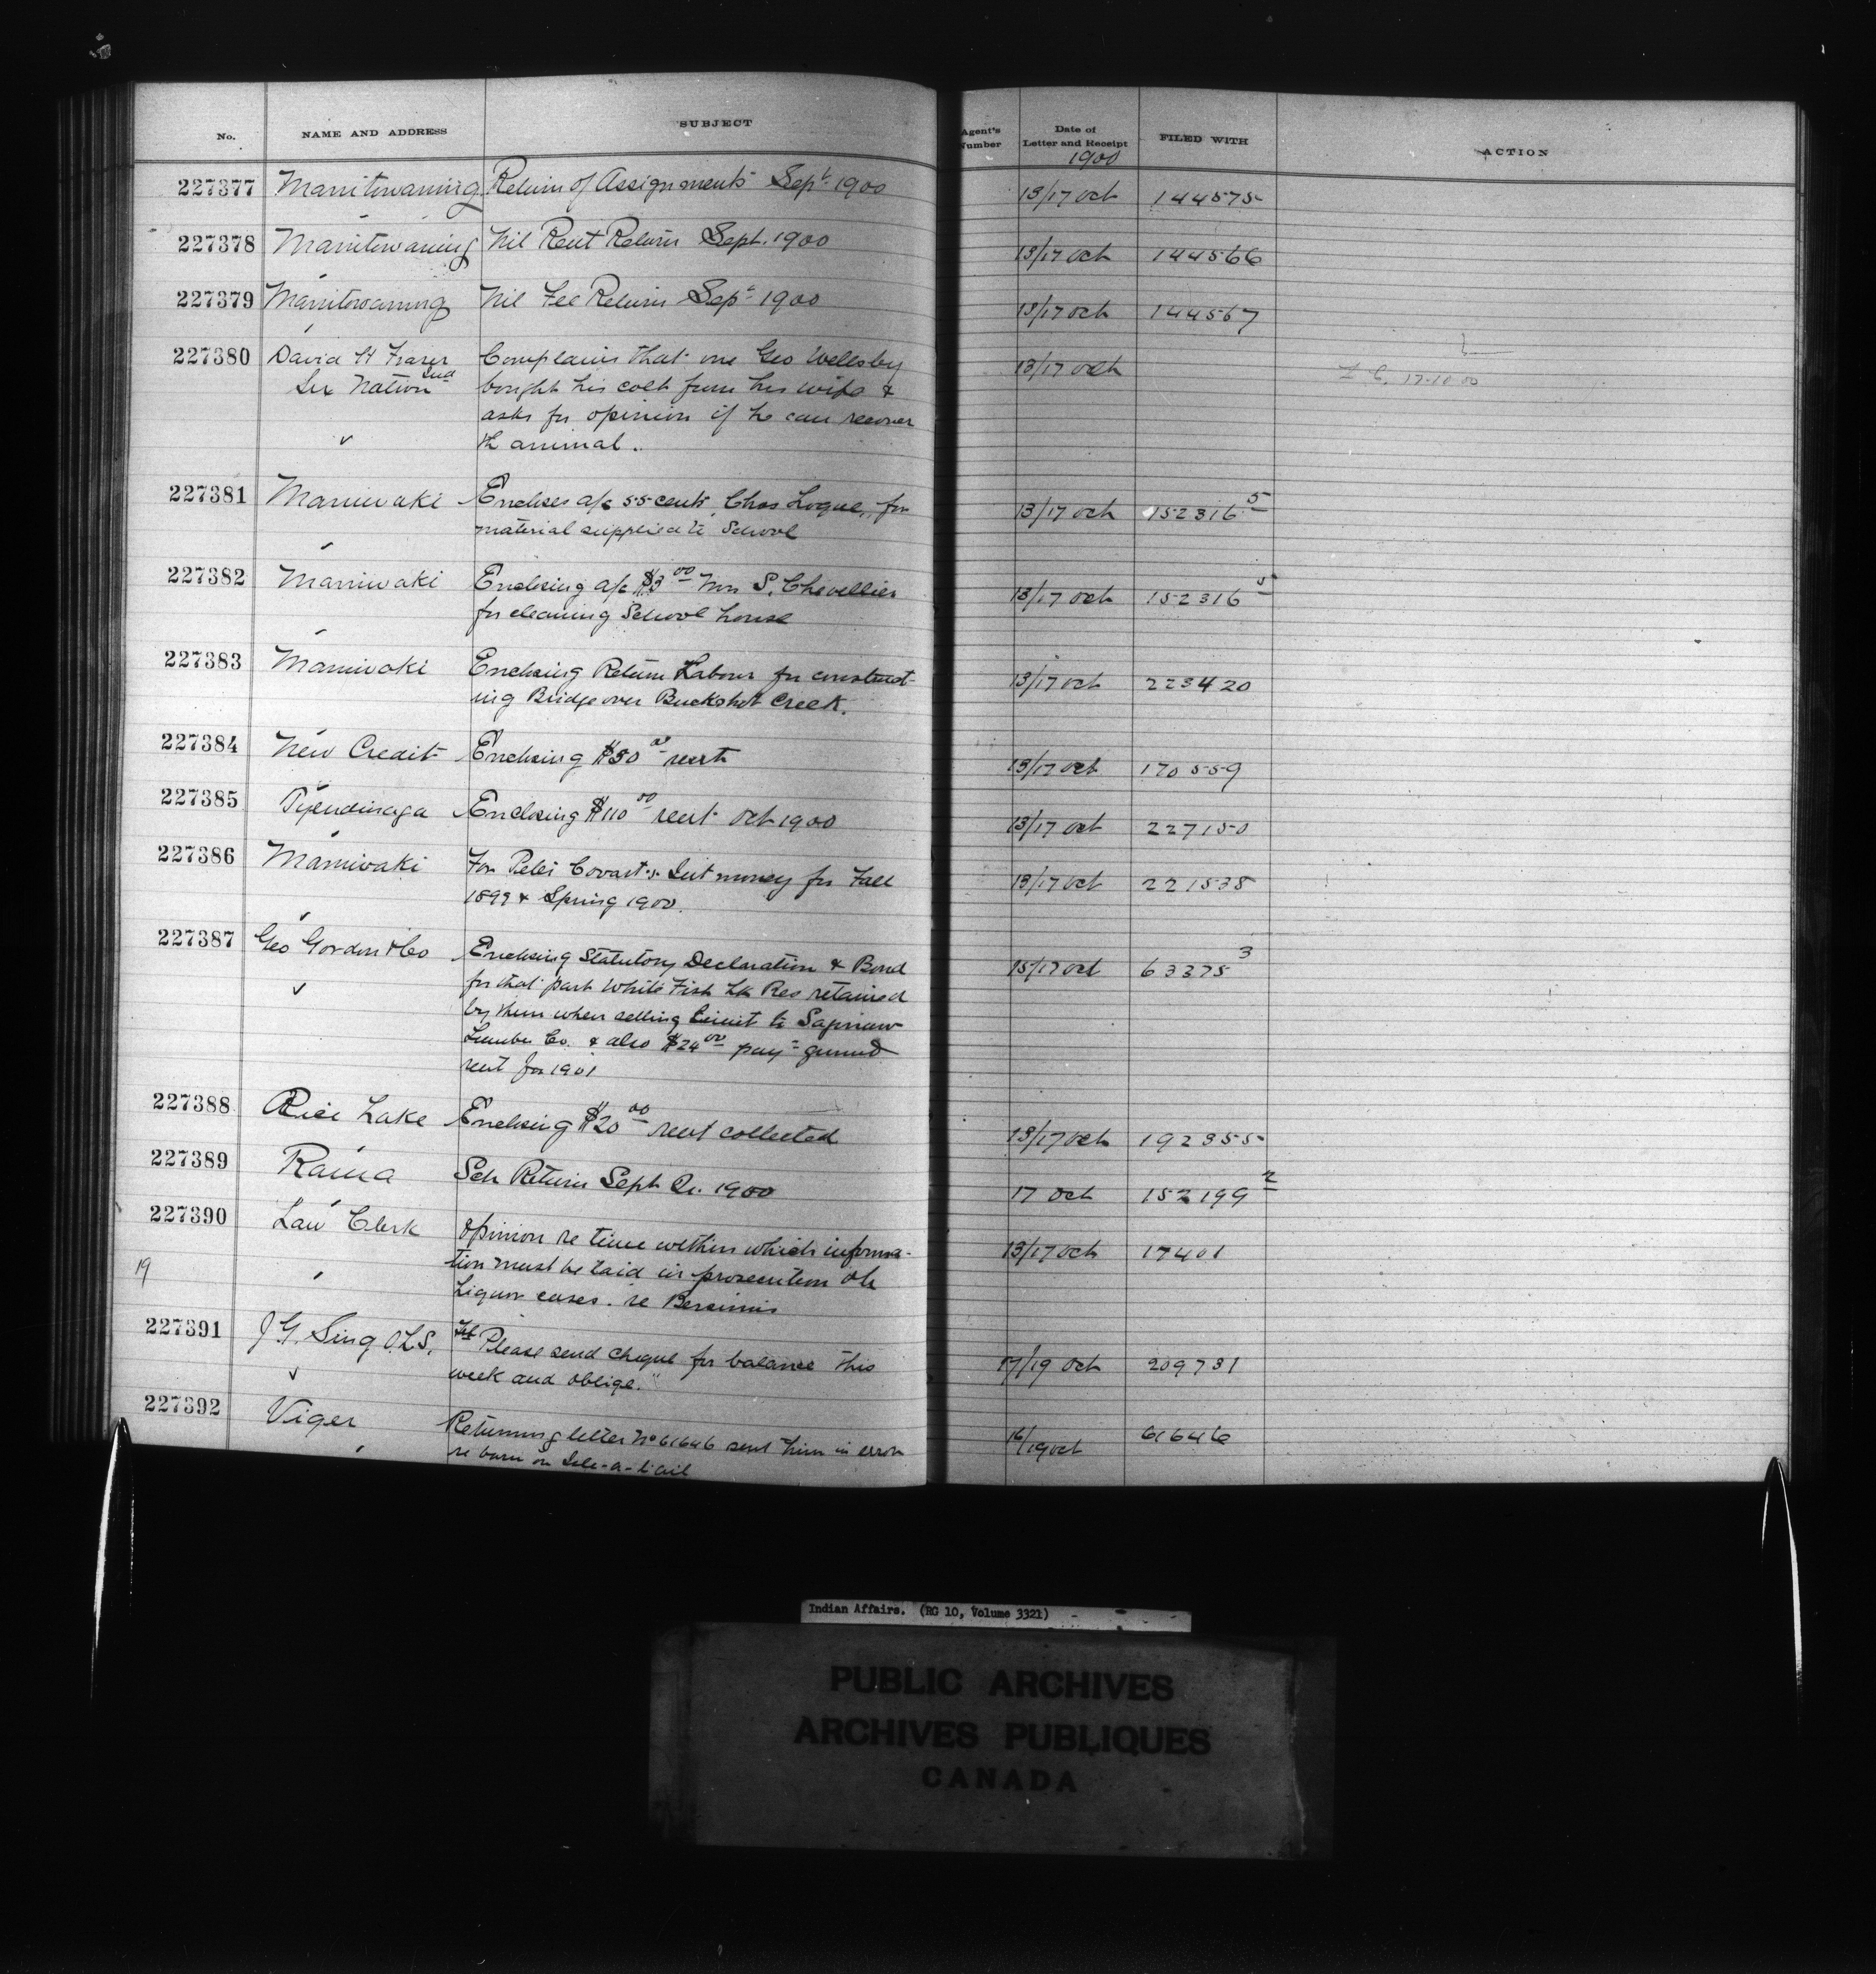 No. NAME AND ADDRESS SUBJECT Agent's Number Date of Letter and Receipt FILED WITH ACTION
1900
227377 Manitowaning Return of Assignments Sept. 1900 13/17 Oct 144575
227378 Manitowaning Nil Rent Return Sept. 1900 13/17 Oct 144566
227379 Manitowaning Nil Fee Return Sept 1900 13/17 Oct 144567
227380 David H Fraser Complains that one Geo Wellsby 13/17 Oct
Six Nation Ind bought his colt from his wife & 17-10-00
asks for opinion if he can recover
th animal.
227381 Maniwaki Encloses a/c 55 cents, Chas Logue, for 13/17 Oct 152316 5
material supplied to School
227382 Maniwaki Enclosing a/c $3 00 Mrs S. Chevellier 13/17 Oct 152316 5
for cleaning School house
227383 Maniwaki Enclosing Return Labour for construct- 13/17 Oct 223420
ing Bridge over Buckshot Creek.
227384 New Credit Enclosing $50 00 rent 13/17 Oct 170559
227385 Tyendinaga Enclosing $110 00 rent Oct 1900 13/17 Oct 227150
227386 Maniwaki For Peter Int money for Fall 13/17 Oct 221538
1899 & Spring 1900.
227387 Geo Gordon & Co Enclosing Statutory Declaration & Bond 15/17 Oct 63375 3
for that part White Fish Lk Res retained
by them when selling limit to Saginaw
Lumber Co. & also $24 00 pay ground
rent for 1901
227388 Rice Lake Enclosing $20 00 rent collected 13/17 Oct 192355
227389 Rama Sch Return Sept Qr. 1900 17 Oct 152199 2
227390 Law Clerk Opinion re time within which informa- 13/17 Oct 17401
19 tion must be laid in prosecution of
Liquor cases. re Bersimis
227391 J G. Sing O.L.S. Tel "Please send cheque for balance this 17/19 Oct 209731
week and oblige."
227392 Viger Returning letter No 61646 sent him in error 16/19 Oct 61646
re barn on
Indian Affairs. (RG 10, Volume 3321)
PUBLIC ARCHIVES
ARCHIVES PUBLIQUES
CANADA